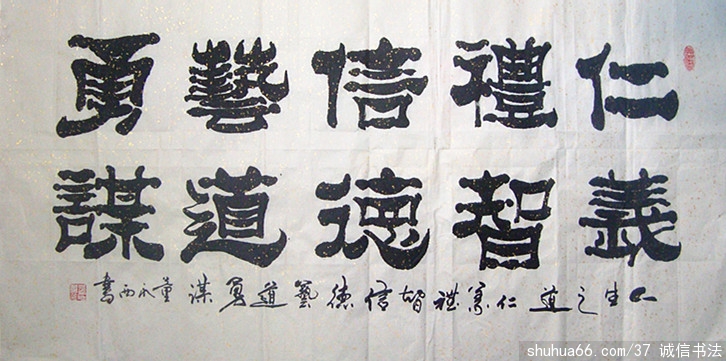 仁義
禮智
信德
藝道
勇謀
人生之道 仁義禮智信德藝道勇謀 西書
shuhua66.com/37 诚信书法